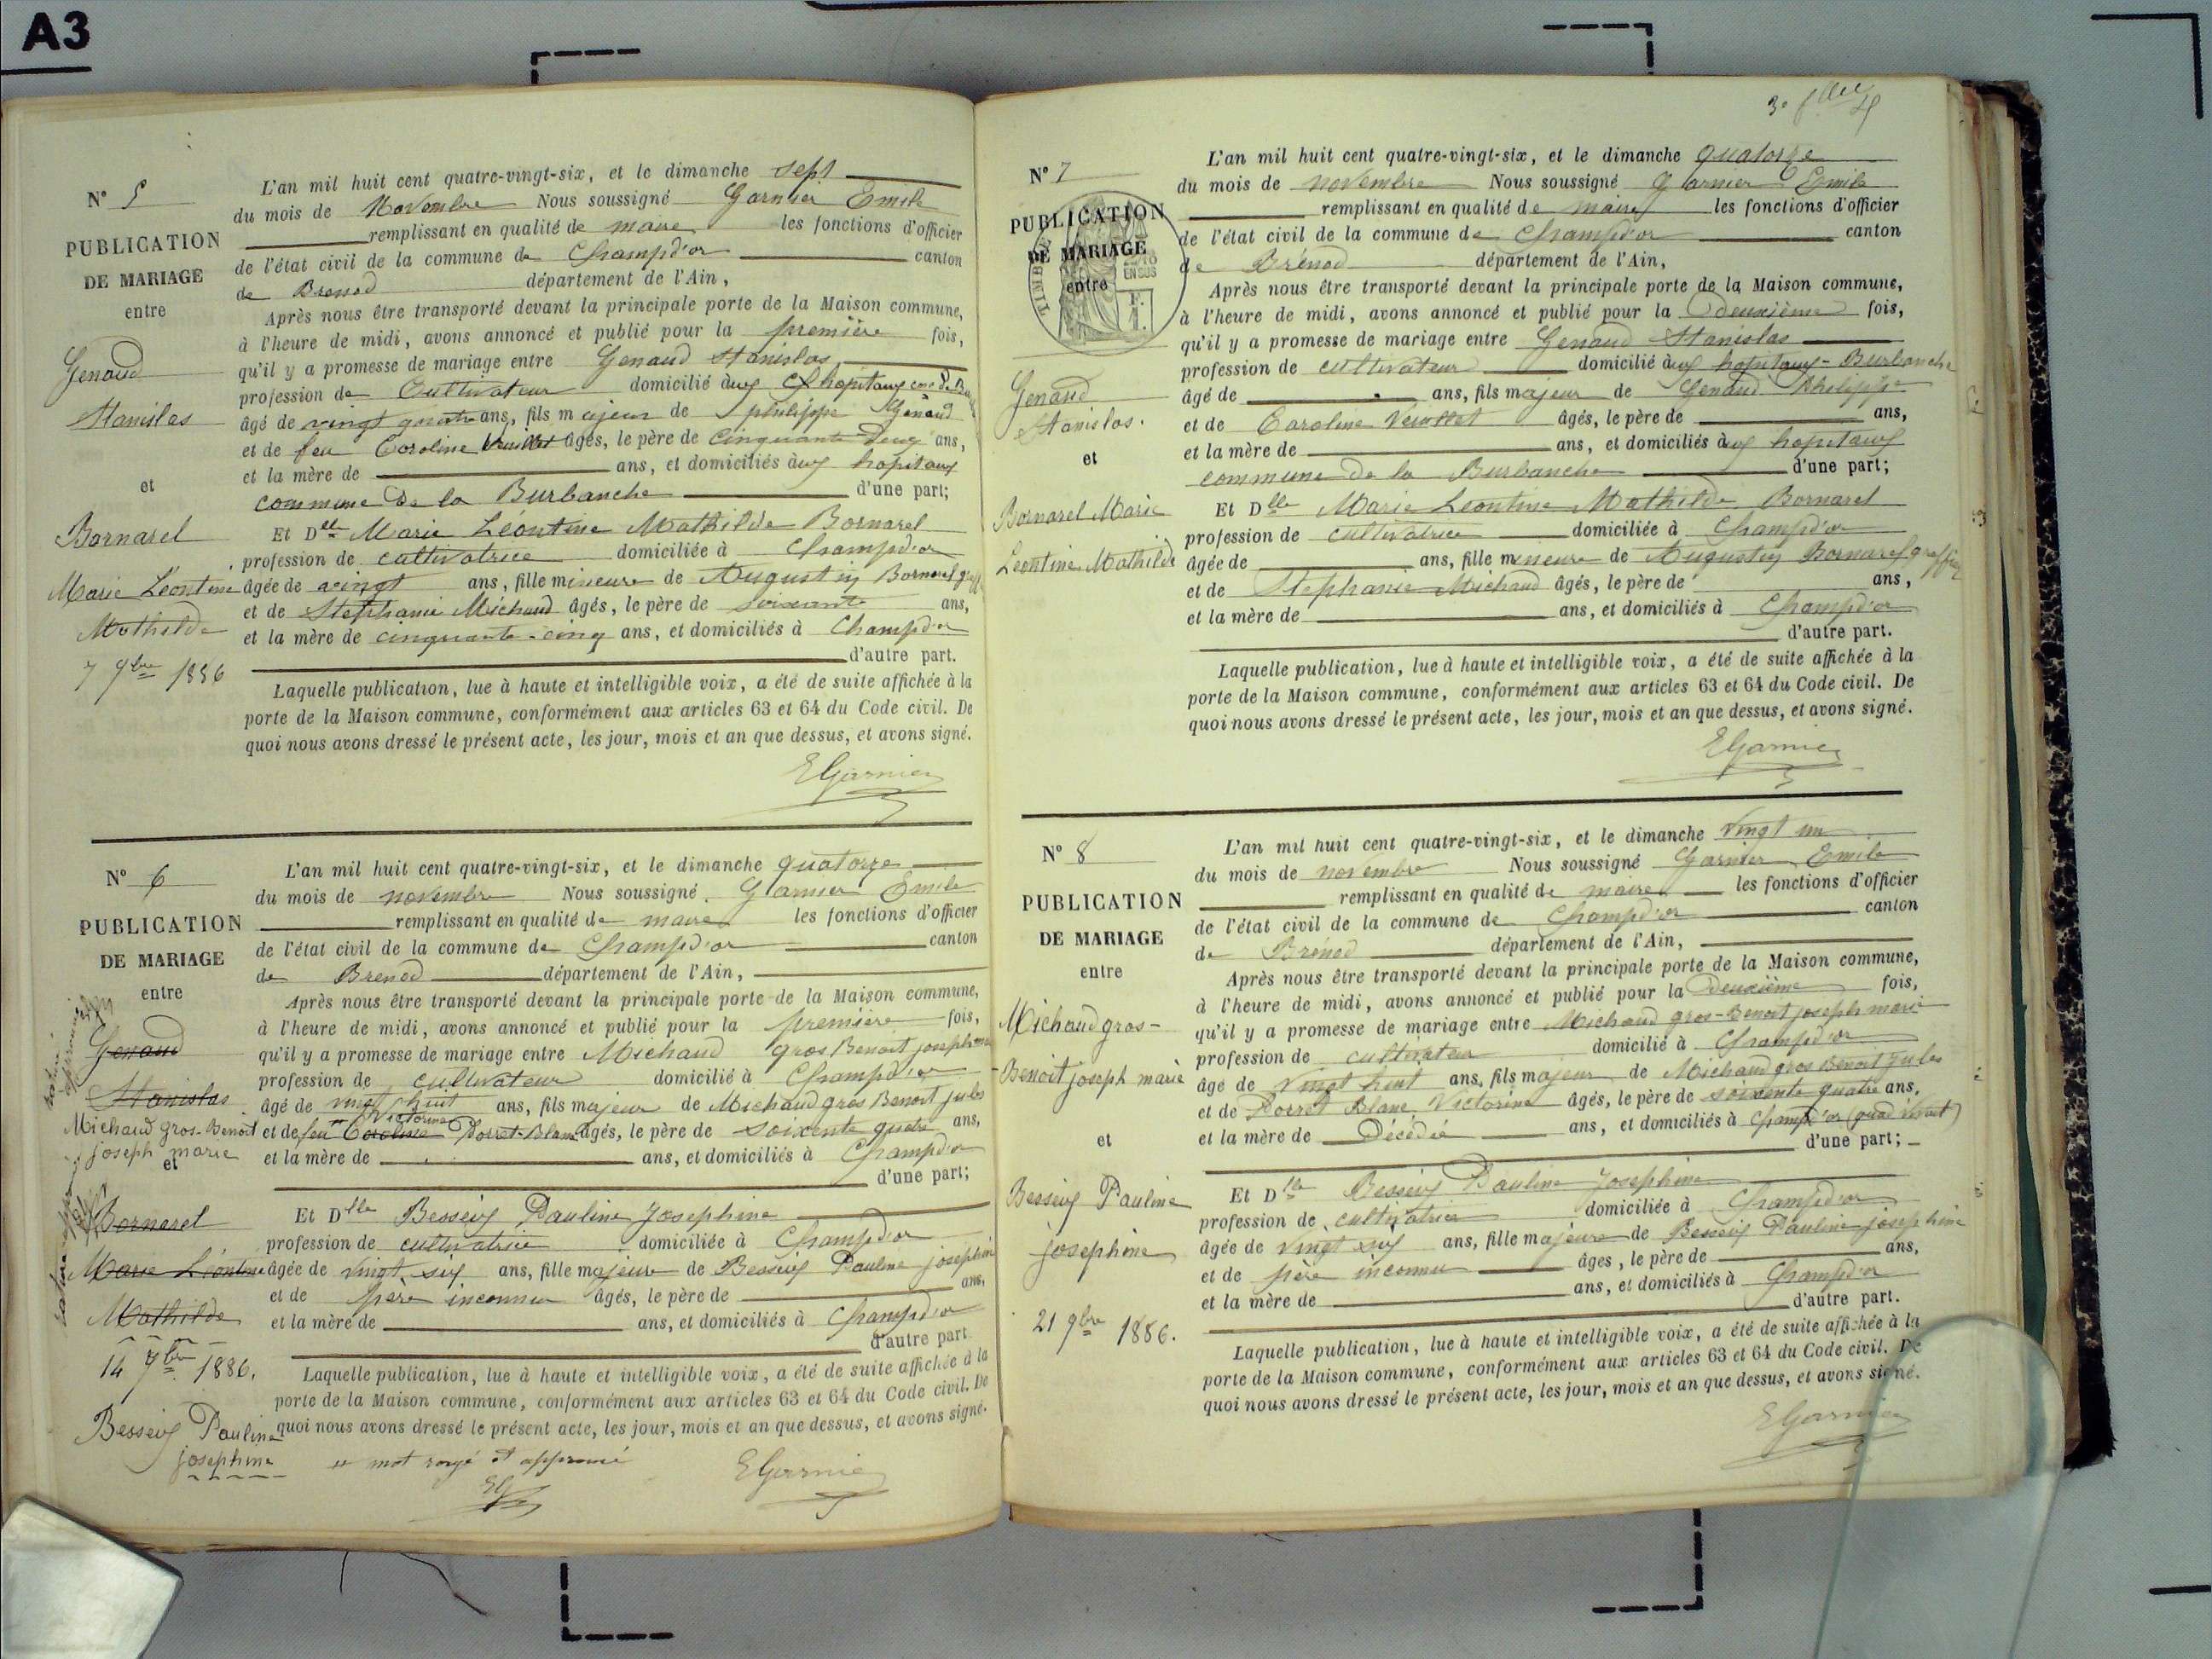 A3
N° 5
PUBLICATION
DE MARIAGE
entre
Genaud
Stanislas
et
Bornarel
Marie Léontine
Mathilde
7 9bre 1886
L'an mil huit cent quatre-vingt-six, et le dimanche sept
du mois de Novembre Nous soussigné Garnier Emile
remplissant en qualité de maire les fonctions d'officier
de l'état civil de la commune de Champd'or canton
de Brenod département de l'Ain,
Après nous être transporté devant la principale porte de la Maison commune,
à l'heure de midi, avons annoncé et publié pour la première fois,
qu'il y a promesse de mariage entre Genaud Stanislas
profession de Cultivateur domicilié aux hopitaux cne de
âgé de vingt quatre ans, fils majeur de philippe Genaud
et de feu Caroline Vuillet âgés, le père de cinquante deux ans,
et la mère de ans, et domiciliés aux hopitaux
commune de la Burbanche d'une part;
Et Dlle Marie Léontine Mathilde Bornarel
profession de cultivatrice domiciliée à Champd'or
âgée de vingt ans, fille mineure de Augustin Bornarel
et de Stephanie Michaud âgés, le père de soixante ans,
et la mère de cinquante-cinq ans, et domiciliés à Champd'or
d'autre part.
Laquelle publication, lue à haute et intelligible voix, a été de suite affichée à la
porte de la Maison commune, conformément aux articles 63 et 64 du Code civil. De
quoi nous avons dressé le présent acte, les jour, mois et an que dessus, et avons signé.
EGarnier
N° 6
PUBLICATION
DE MARIAGE
entre
Genaud
Stanislas
Michaud gros-Benoit
joseph marie
et
Bornarel
Marie Léontine
Mathilde
14 9bre 1886.
Besseux Pauline
josephine
L'an mil huit cent quatre-vingt-six, et le dimanche quatorze
du mois de novembre Nous soussigné Garnier Emile
remplissant en qualité de maire les fonctions d'officier
de l'état civil de la commune de Champd'or canton
de Brenod département de l'Ain,
Après nous être transporté devant la principale porte de la Maison commune,
à l'heure de midi, avons annoncé et publié pour la première fois,
qu'il y a promesse de mariage entre Michaud gros Benoit joseph
profession de cultivateur domicilié à Champd'or
âgé de vingt huit ans, fils majeur de Michaud gros Benoit jules
Victorine
et de feu Caroline Poncet-Blanc âgés, le père de soixente quatre ans,
et la mère de ans, et domiciliés à Champd'or
d'une part;
Et Dlle Besseux Pauline Josephine
profession de cultivatrice domiciliée à Champd'or
âgée de vingt six ans, fille majeure de Besseux Pauline josephine
et de père inconnu âgés, le père de ans,
et la mère de ans, et domiciliés à Champd'or
d'autre part
Laquelle publication, lue à haute et intelligible voix, a été de suite affichée à la
porte de la Maison commune, conformément aux articles 63 et 64 du Code civil. De
quoi nous avons dressé le présent acte, les jour, mois et an que dessus, et avons signé.
un mot rayé et approuvé
EG
EGarnier
N° 7
PUBLICATION
DE MARIAGE
entre
Genaud
Stanislas.
et
Bornarel Marie
Leontine Mathilde
L'an mil huit cent quatre-vingt-six, et le dimanche quatorze
du mois de novembre Nous soussigné Garnier Emile
remplissant en qualité de maire les fonctions d'officier
de l'état civil de la commune de Champd'or canton
de Brénod département de l'Ain,
Après nous être transporté devant la principale porte de la Maison commune,
à l'heure de midi, avons annoncé et publié pour la deuxième fois,
qu'il y a promesse de mariage entre Genaud Stanislas
profession de cultivateur domicilié aux hopitaux-Burbanche
âgé de ans, fils majeur de Genaud Philippe
et de Caroline Vuillet âgés, le père de ans,
et la mère de ans, et domiciliés aux hopitaux
commune de la Burbanche d'une part;
Et Dlle Marie Leontine Mathilde Bornarel
profession de cultivatrice domiciliée à Champd'or
âgée de ans, fille mineure de Augustin Bornarel greffier
et de Stephanie Michaud âgés, le père de ans,
et la mère de ans, et domiciliés à Champd'or
d'autre part.
Laquelle publication, lue à haute et intelligible voix, a été de suite affichée à la
porte de la Maison commune, conformément aux articles 63 et 64 du Code civil. De
quoi nous avons dressé le présent acte, les jour, mois et an que dessus, et avons signé.
EGarnier
N° 8
PUBLICATION
DE MARIAGE
entre
Michaud gros-
Benoit joseph marie
et
Besseux Pauline
josephine
21 9bre 1886.
L'an mil huit cent quatre-vingt-six, et le dimanche vingt un
du mois de novembre Nous soussigné Garnier Emile
remplissant en qualité de maire les fonctions d'officier
de l'état civil de la commune de Champd'or canton
de Brénod département de l'Ain,
Après nous être transporté devant la principale porte de la Maison commune,
à l'heure de midi, avons annoncé et publié pour la deuxième fois,
qu'il y a promesse de mariage entre Michaud gros-Benoit joseph marie
profession de cultivateur domicilié à Champd'or
âgé de vingt huit ans, fils majeur de Michaud gros Benoit jules
et de Poncet Blanc Victorine âgés, le père de soixente quatre ans,
et la mère de Décédée ans, et domiciliés à Champd'or (quad vivait)
d'une part;
Et Dlle Besseux Pauline Josephine
profession de cultivatrice domiciliée à Champd'or
âgée de vingt six ans, fille majeure de Besseux Pauline josephine
et de père inconnu âgés, le père de ans,
et la mère de ans, et domiciliés à Champd'or
d'autre part.
Laquelle publication, lue à haute et intelligible voix, a été de suite affichée à la
porte de la Maison commune, conformément aux articles 63 et 64 du Code civil. De
quoi nous avons dressé le présent acte, les jour, mois et an que dessus, et avons signé.
EGarnier